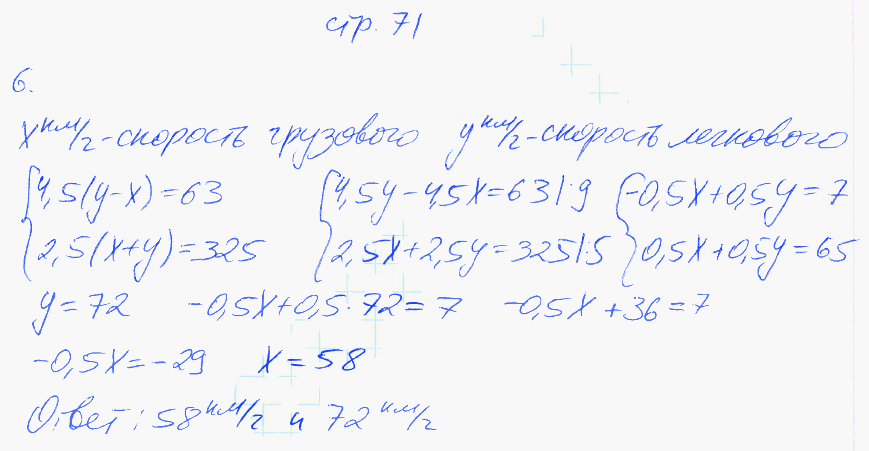 стр. 71
6.
x км/г - скорость грузового y км/г - скорость легкового
{4,5(y-x)=63 {4,5y-4,5x=63|:9 {-0,5x+0,5y=7
{2,5(x+y)=325 {2,5x+2,5y=325|:5 {0,5x+0,5y=65
y=72 -0,5x+0,5·72=7 -0,5x+36=7
-0,5x=-29 x=58
Ответ: 58 км/г и 72 км/г